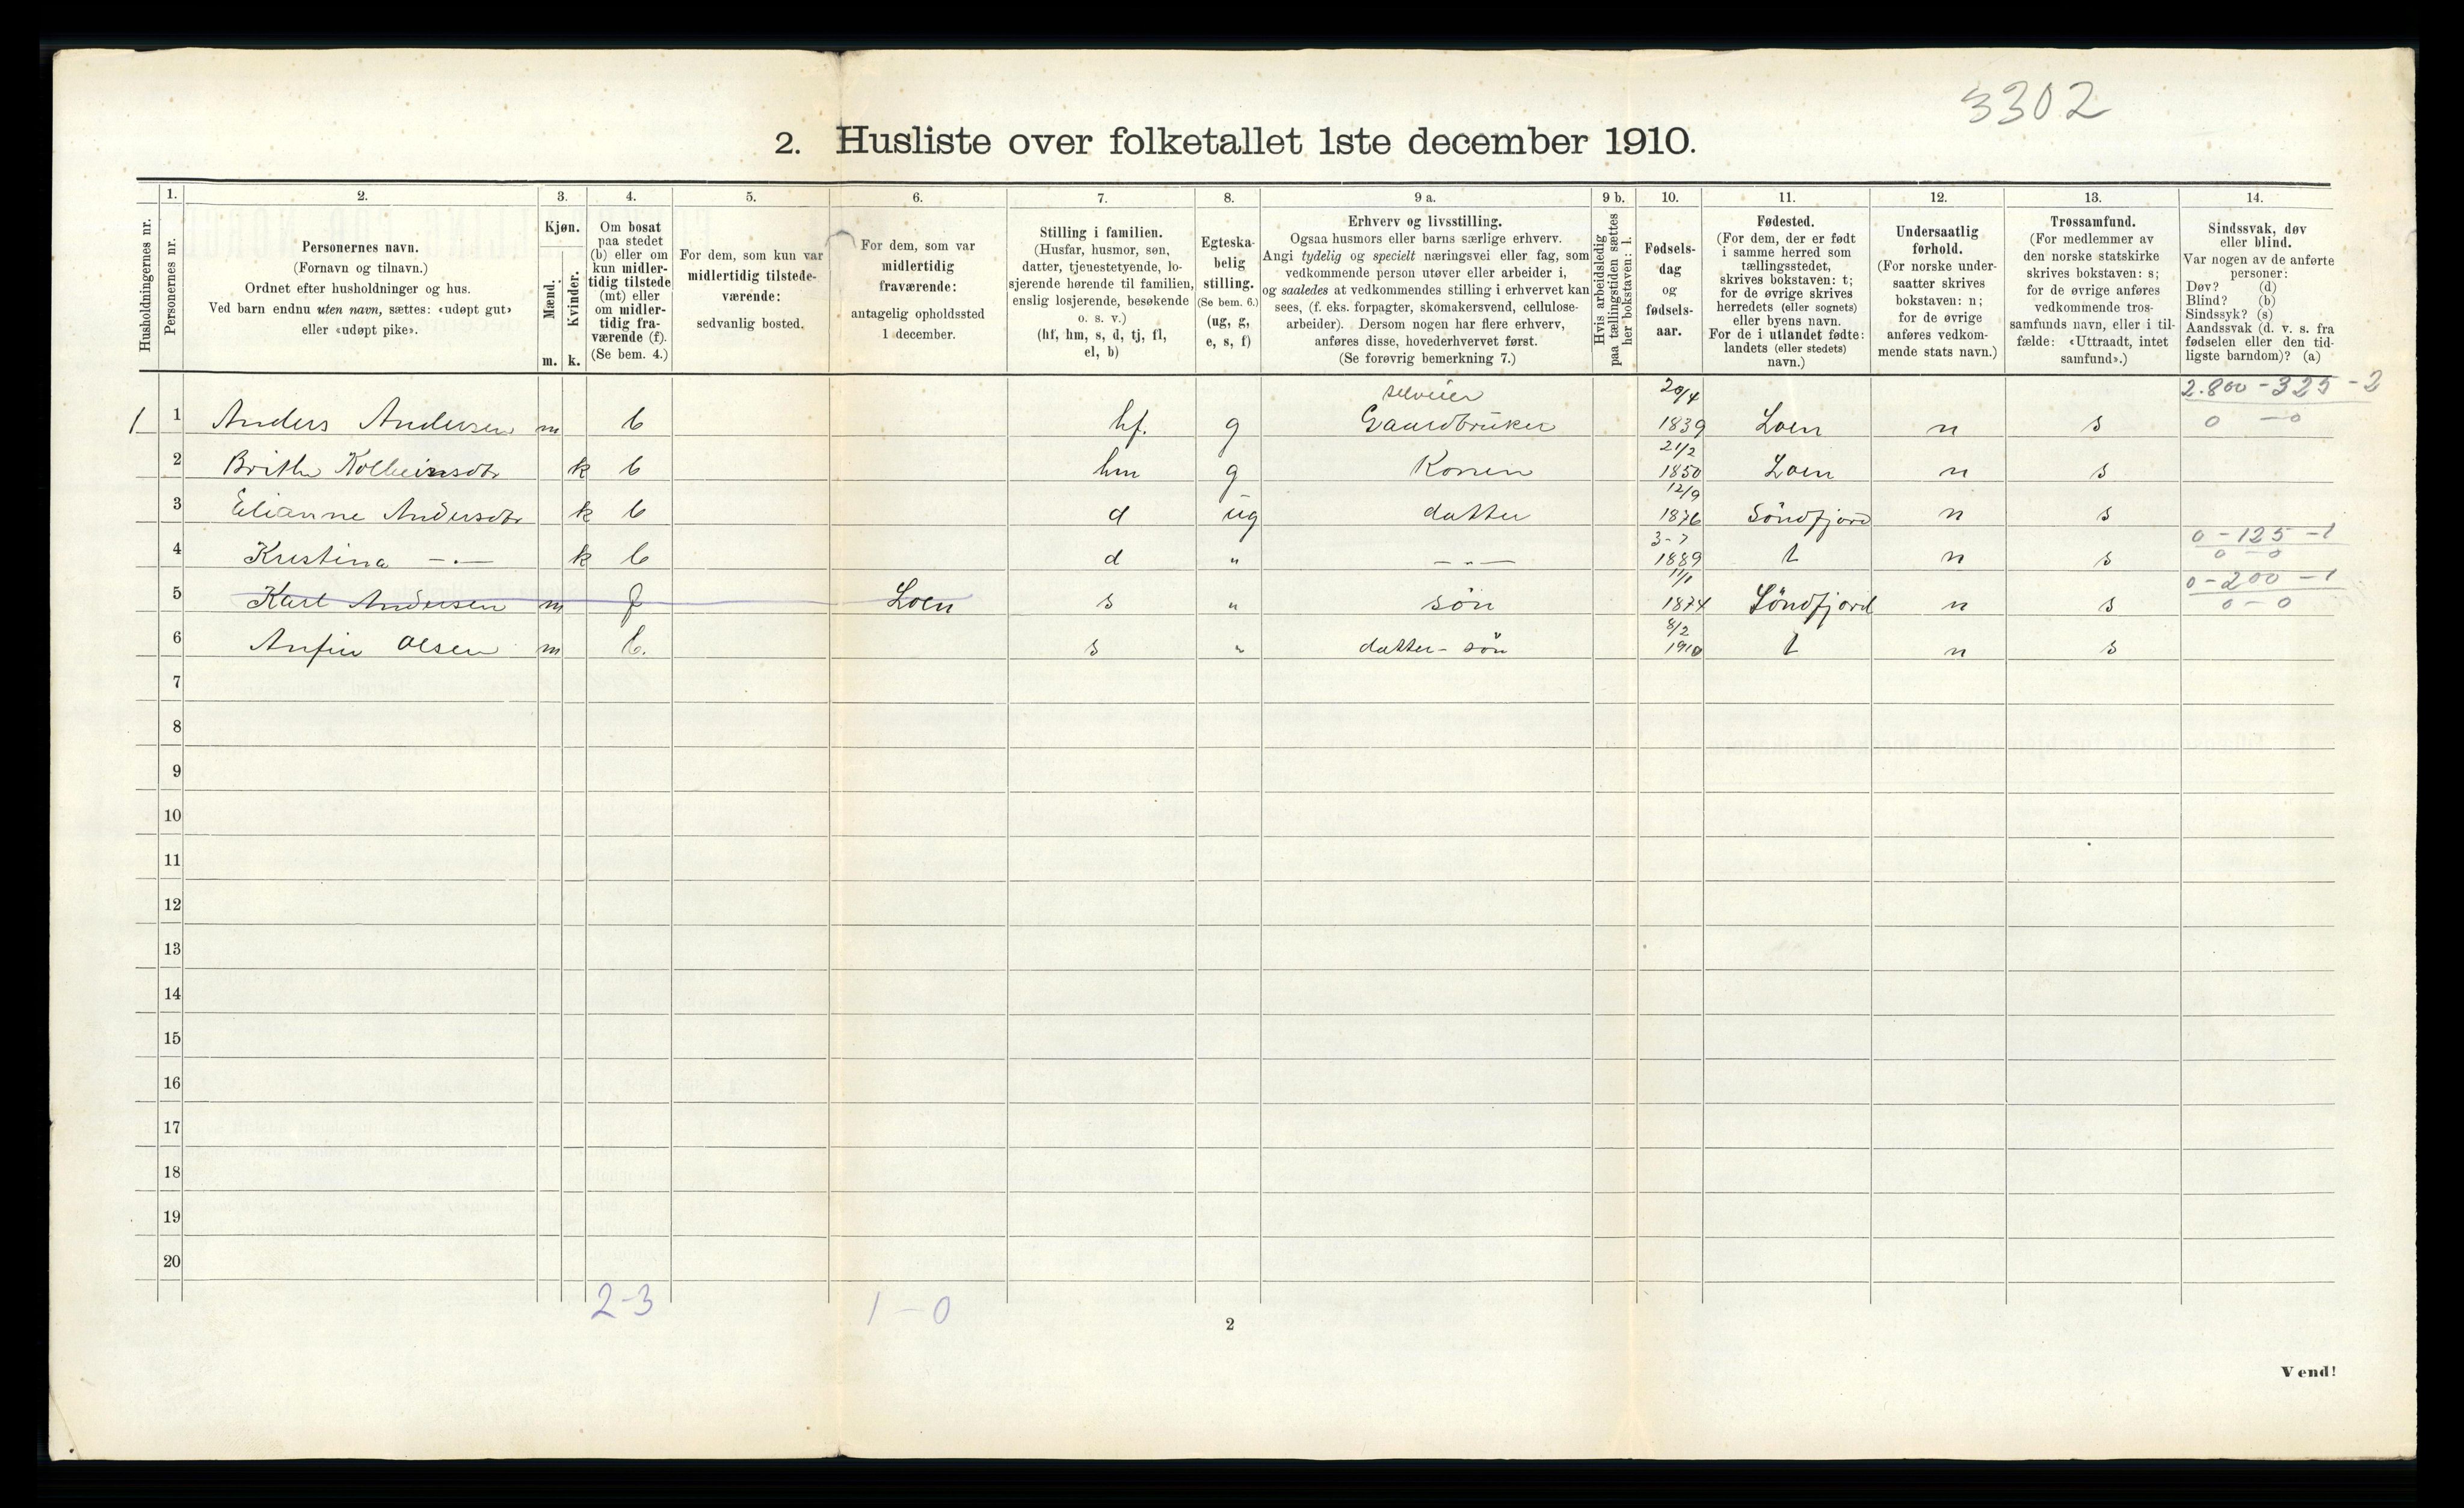 3302
2. Husliste over folketallet 1ste december 1910.
1. 2. 3. 4. 5. 6. 7. 8. 9 a. 9 b. 10. 11. 12. 13. 14.
Husholdningernes nr.
Personernes nr.
Personernes navn.
(Fornavn og tilnavn.)
Ordnet efter husholdninger og hus.
Ved barn endnu uten navn, sættes: «udøpt gut»
eller «udøpt pike».
Kjøn.
Mænd.
Kvinder.
m. k.
Om bosat
paa stedet
(b) eller om
kun midler-
tidig tilstede
(mt) eller
om midler-
tidig fra-
værende (f).
(Se bem. 4.)
For dem, som kun var
midlertidig tilstede-
værende:
sedvanlig bosted.
For dem, som var
midlertidig
fraværende:
antagelig opholdssted
1 december.
Stilling i familien.
(Husfar, husmor, søn,
datter, tjenestetyende, lo-
sjerende hørende til familien,
enslig losjerende, besøkende
o. s. v.)
(hf, hm, s, d, tj, fl,
el, b)
Egteska-
belig
stilling.
(Se bem. 6.)
(ug, g,
e, s, f)
Erhverv og livsstilling.
Ogsaa husmors eller barns særlige erhverv.
Angi tydelig og specielt næringsvei eller fag, som
vedkommende person utøver eller arbeider i,
og saaledes at vedkommendes stilling i erhvervet kan
sees, (f. eks. forpagter, skomakersvend, cellulose-
arbeider). Dersom nogen har flere erhverv,
anføres disse, hovederhvervet først.
(Se forøvrig bemerkning 7.)
Hvis arbeidsledig
paa tællingstiden sættes
her bokstaven: l.
Fødsels-
dag
og
fødsels-
aar.
Fødested.
(For dem, der er født
i samme herred som
tællingsstedet,
skrives bokstaven: t;
for de øvrige skrives
herredets (eller sognets)
eller byens navn.
For de i utlandet fødte:
landets (eller stedets)
navn.)
Undersaatlig
forhold.
(For norske under-
saatter skrives
bokstaven: n;
for de øvrige
anføres vedkom-
mende stats navn.)
Trossamfund.
(For medlemmer av
den norske statskirke
skrives bokstaven: s;
for de øvrige anføres
vedkommende tros-
samfunds navn, eller i til-
fælde: «Uttraadt, intet
samfund».)
Sindssvak, døv
eller blind.
Var nogen av de anførte
personer:
Døv? (d)
Blind? (b)
Sindssyk? (s)
Aandssvak (d. v. s. fra
fødselen eller den tid-
ligste barndom)? (a)
selveier 20/4 2.800 - 325 - 2
1 1 Anders Andersen m b hf. g Gaardbruker 1839 Loen n s 0 - 0
21/2
2 Brithe Kolbeinsdtr k b hm g Konen 1850 Loen n s
12/9
3 Elianne Andersdtr k b d ug datter 1876 Söndfjord n s
3-7 0 - 125 - 1
4 Kristina -"- k b d " -"- 1889 t n s 0 - 0
11/1 0 - 200 - 1
5 Karl Andersen m f Loen s " sön 1874 Söndfjord n s 0 - 0
8/2
6 Anfin Olsen m b. s " datter-sön 1910 t n s
7
8
9
10
11
12
13
14
15
16
17
18
19
20
2-3 1-0
2
Vend!